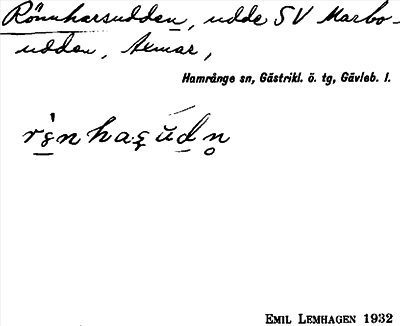 Rönnharsudden, udde SV Marbo-
udden, Axmar,
Hamrånge sn, Gästrikl. ö. tg, Gävleb. l.
EMIL LEMHAGEN 1932